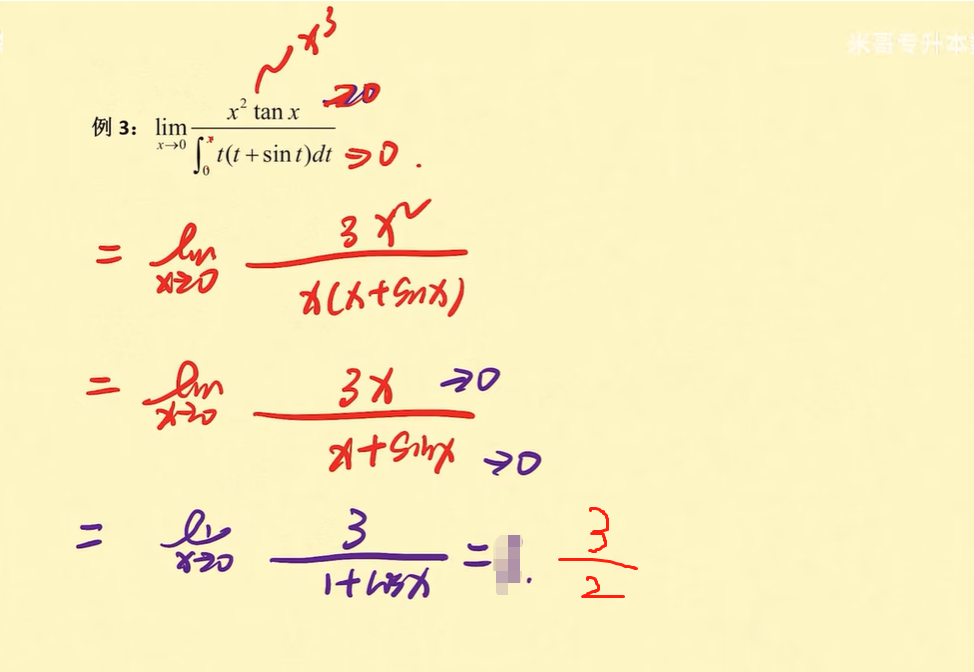 米哥专升本
~x³
例 3: lim x→0 x² tan x / ∫₀ˣ t(t + sin t)dt →0 ⇒0.
= lim x→0 3x² / x(x+sinx)
= lim x→0 3x →0 / x+sinx →0
= li x→0 3 / 1+cosx = . 3/2